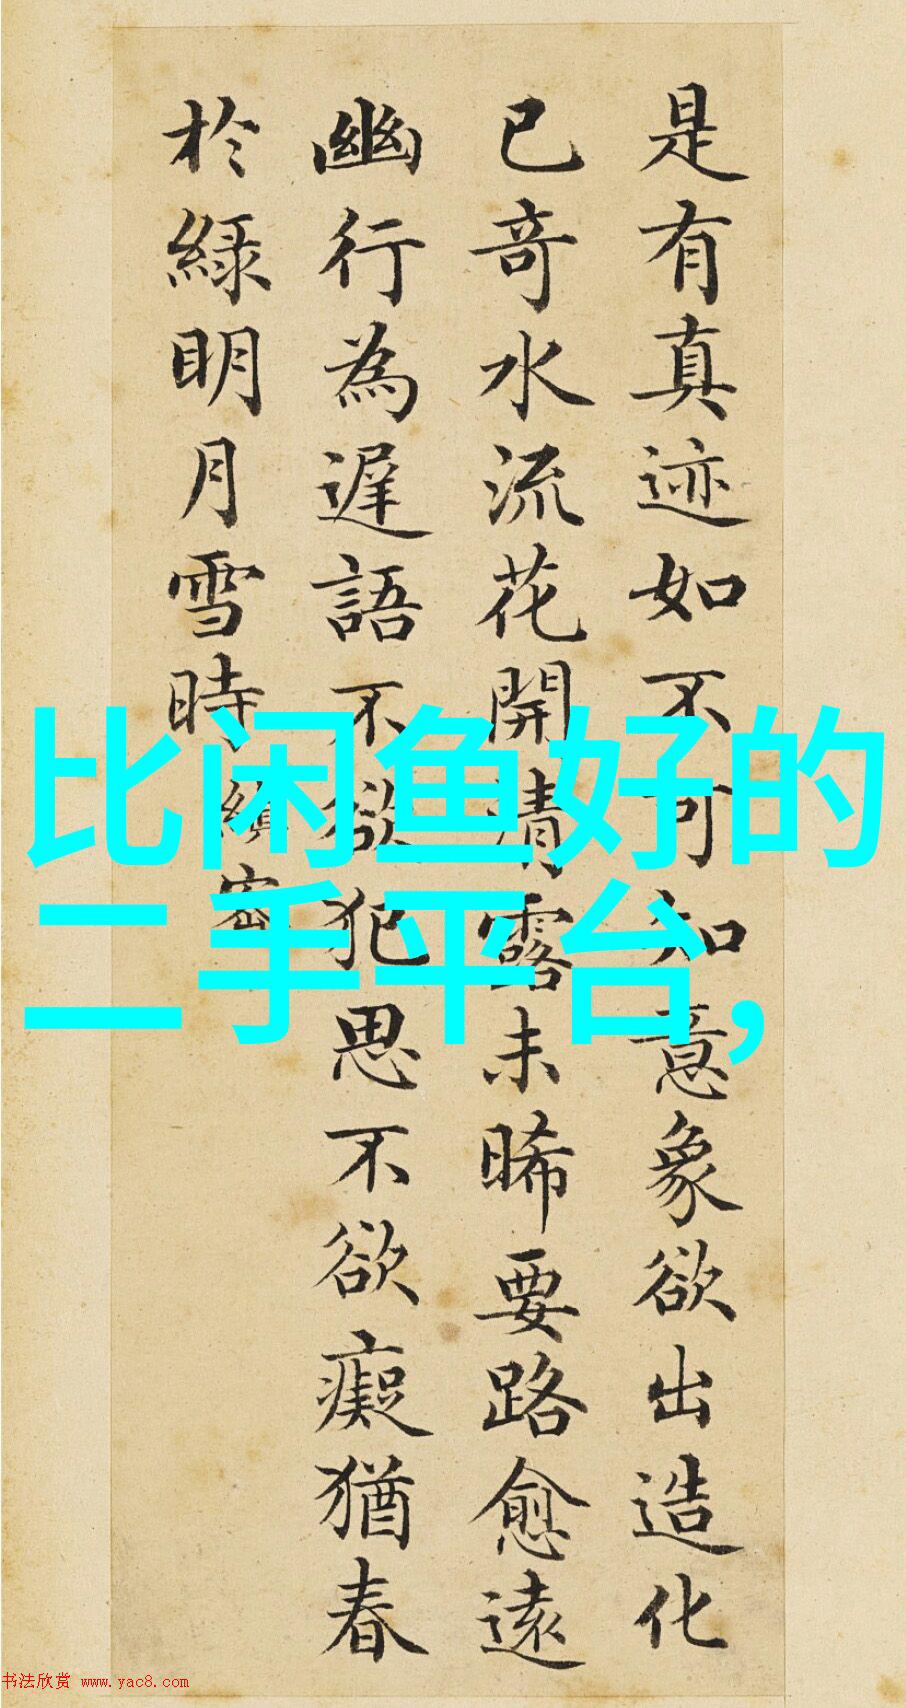 是有真迹如不可知意象欲出造化
已奇水流花開清露未晞要路愈遠
幽行為遲語不欲犯思不欲癡猶春
於綠明月雪時縝密
比闲鱼好的
二手平台,
书法欣赏 www.yac8.com